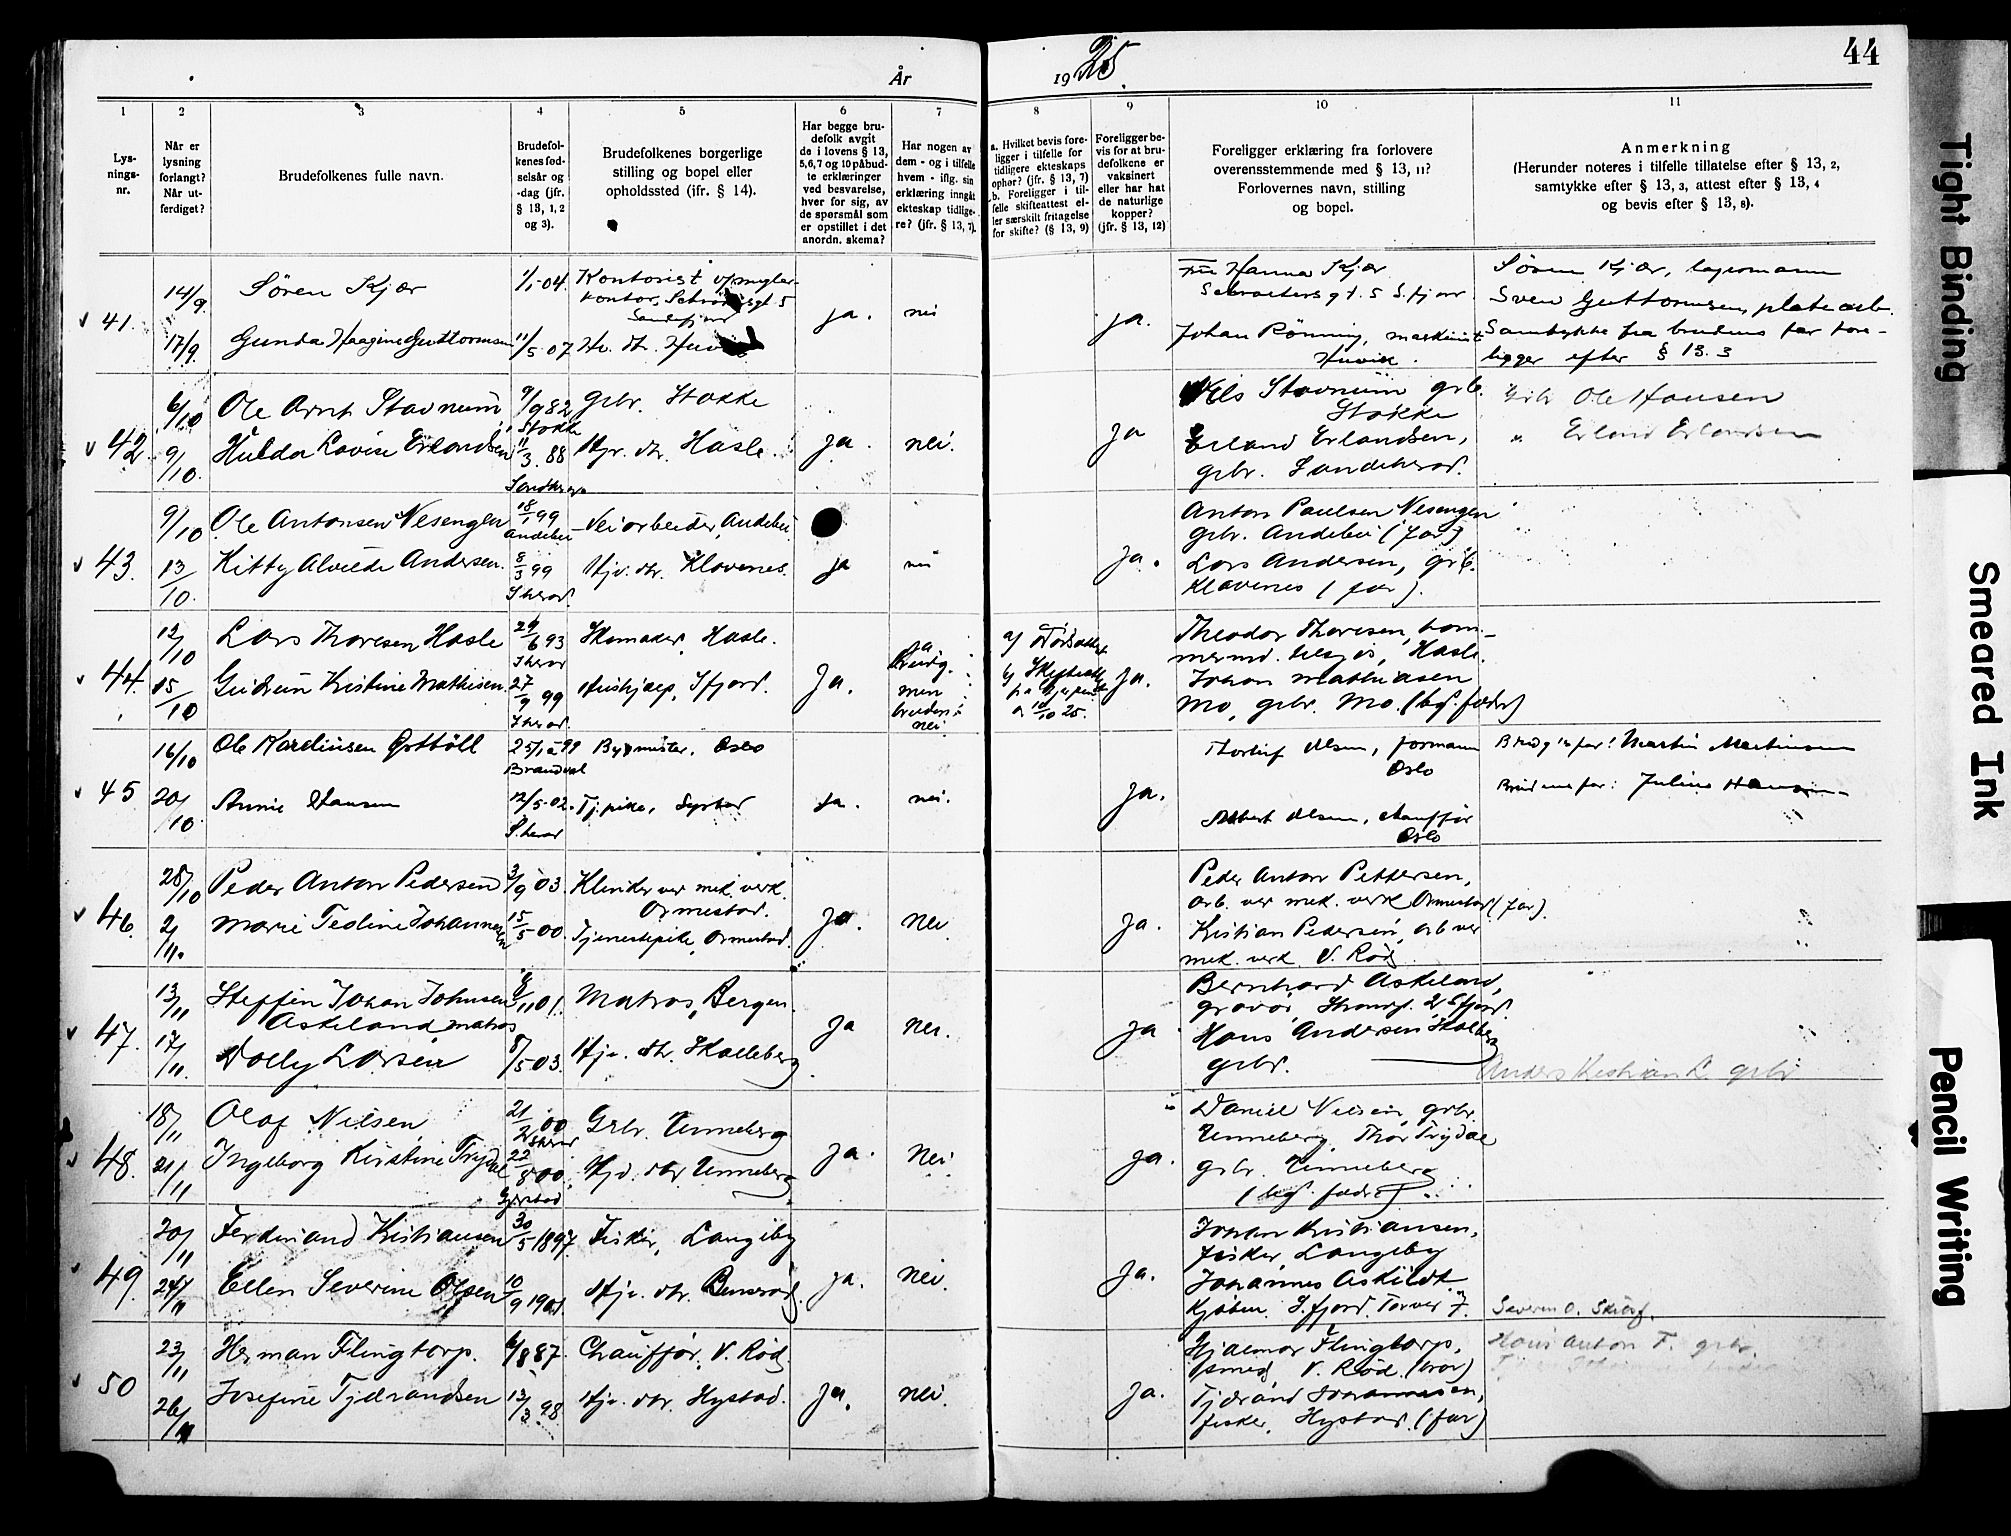 År 1925.
44
1
2
3
4
5
6
7
8
9
10
11
Lysningsnr.
Når er lysning forlangt? Når utferdiget?
Brudefolkenes fulle navn.
Brudefolkenes fødselsår og -dag (jfr. § 13, 1, 2 og 3).
Brudefolkenes borgerlige stilling og bopel eller opholdssted (ifr. § 14).
Har begge brudefolk avgit de i lovens § 13, 5,6, 7 og 10 påbudte erklæringer ved besvarelse, hver for sig, av de spørsmål som er opstillet i det anordn. skema?
Har nogen av dem - og i tilfelle hvem - iflg. sin erklæring inngåt ekteskap tidligere? (jfr. § 13, 7).
a. Hvilket bevis foreligger i tilfelle for tidligere ekteskaps ophør? (jfr. § 13, 7)
b. Foreligger i tilfelle skifteattest eller særskilt fritagelse for skifte? (§ 13, 9)
Foreligger bevis for at brudefolkene er vaksinert eller har hat de naturlige kopper? (jfr. § 13, 12)
Foreligger erklæring fra forlovere overensstemmende med § 13, 11? Forlovernes navn, stilling og bopel.
Anmerkning
(Herunder noteres i tilfelle tillatelse efter § 13, 2, samtykke efter § 13, 3, attest efter § 13, 4 og bevis efter § 13, 8).
41.
14/9.
17/9.
Søren Kjær
Gunda Haagine Guttormsen
1/1-04.
11/5 07.
Kontorist
kontor,
ja.
nei
ja.
Fru Hanna Kjær
Johan Rönning, maskinist
Søren Kjær,
Sven Guttormsen, platearb.
Samtykke fra brudens far fore-
ligger efter § 13.3
42.
6/10
9/10.
Ole Arnt Stavnum
Hulda Lovise Erlandsen
9/9 82
Stokke
11/3. 88
gbr. Stokke
Hjv. dtr. Hasle.
ja.
nei.
ja
Nils Stavnum grb.
Stokke
Erland Erlandsen,
grbr. Sandeherad.
Ole Hansen
" Erland Erlandsen
43.
9/10
13/10.
Ole Antonsen Nesengen
Kitty Alvilde Andersen.
18/1 99
Andebu
8/3 99
S.herad.
Veiarbeider, Andebu
Hjv. dtr. Klavenes.
ja
nei
ja.
Anton Paulsen Nesengen
gbr. Andebu (far)
Lars Andersen, grb.
Klavenes (far).
44.
12/10
15/10
Lars Thoresen Hasle
Gudrun Kristine Mathisen.
29/6 93
S.herad
27/9 99
S.herad.
Skomaker, Hasle.
Hushjelp, Sfjord.
Ja.
ja
brudg.
men
bruden:
nei.
a/ Dødsattest
b/ Skifteattest
10/10 25.
ja.
Theodor Thoresen, tøm-
mermd. Hasle.
Johan Mathiasen
Mo, grbr. Mo. (bgg. fædre)
45
16/10
20/10
Ole Karelinsen
Annie Hansen
25/12 99
Brandval
12/5-02.
S.herad
Oslo
Tj.pike,
ja.
nei.
ja.
Thorleif Olsen, formann
Oslo
Albert Olsen, chauffør
Oslo
Brudg's far: Martin Martinsen
Brudens far: Julius Hansen
46.
28/10
2/11.
Peder Anton Pedersen
Marie Teoline Johannessen
3/9 03.
15/5-00.
Klinker ved mek. verk.
Ormestad.
Tjenestepike, Ormestad.
ja.
nei
ja.
Peder Anton Pettersen,
arb. ved mek. verk Ormestad (far).
Kristian Pedersen, arb ved
mek. verk. V. Rød
47.
13/11
17/11.
Steffen Johan Johnsen
Askeland matros
Dolly Larsen
8/11 01.
8/5 03.
Matros, Bergen.
Hjv. dtr. Skalleberg
ja
nei.
ja
Bernhard Askeland,
gravør, Sfjord.
Hans Andersen Skalleberg
grbr.
Anders Kristian L. grbr
48.
18/11
21/11
Olaf Nilsen
Ingeborg Kirstine Trydal
21/2 00
S.herad
22/8 00.
Gjerstad
Grbr. Unneberg
Hjv. dtr Unneberg
ja.
Nei.
ja.
Daniel Nilsen, grbr
Unneberg, Thor Trydal
grbr. Unneberg
(bgg. fædre).
49.
20/11
24/11
Ferdinand Kristiansen
Ellen Severine Olsen
30/5 1897.
10/9 1901.
Fisker, Langeby
Hjv. dtr.
ja.
nei.
ja.
Johan Kristiansen,
fisker, Langeby
Johannes Askildt
kjøbm. S.fjord. Torvet 7.
Severin O.
50
23/11
26/11
Herman Flingtorp.
Josefine Tjdrandsen
6/8 87.
12/3 98.
Chauffør, V. Rød
Hjv. dtr. Hystad.
ja.
nei.
ja.
Hjalmar Flingtorp,
smed, V. Rød (bror)
Tjdrand Johannesen,
fisker, Hystad. (far)
Hans Anton F. grbr.
Tight Binding
Smeared Ink
Pencil Writing